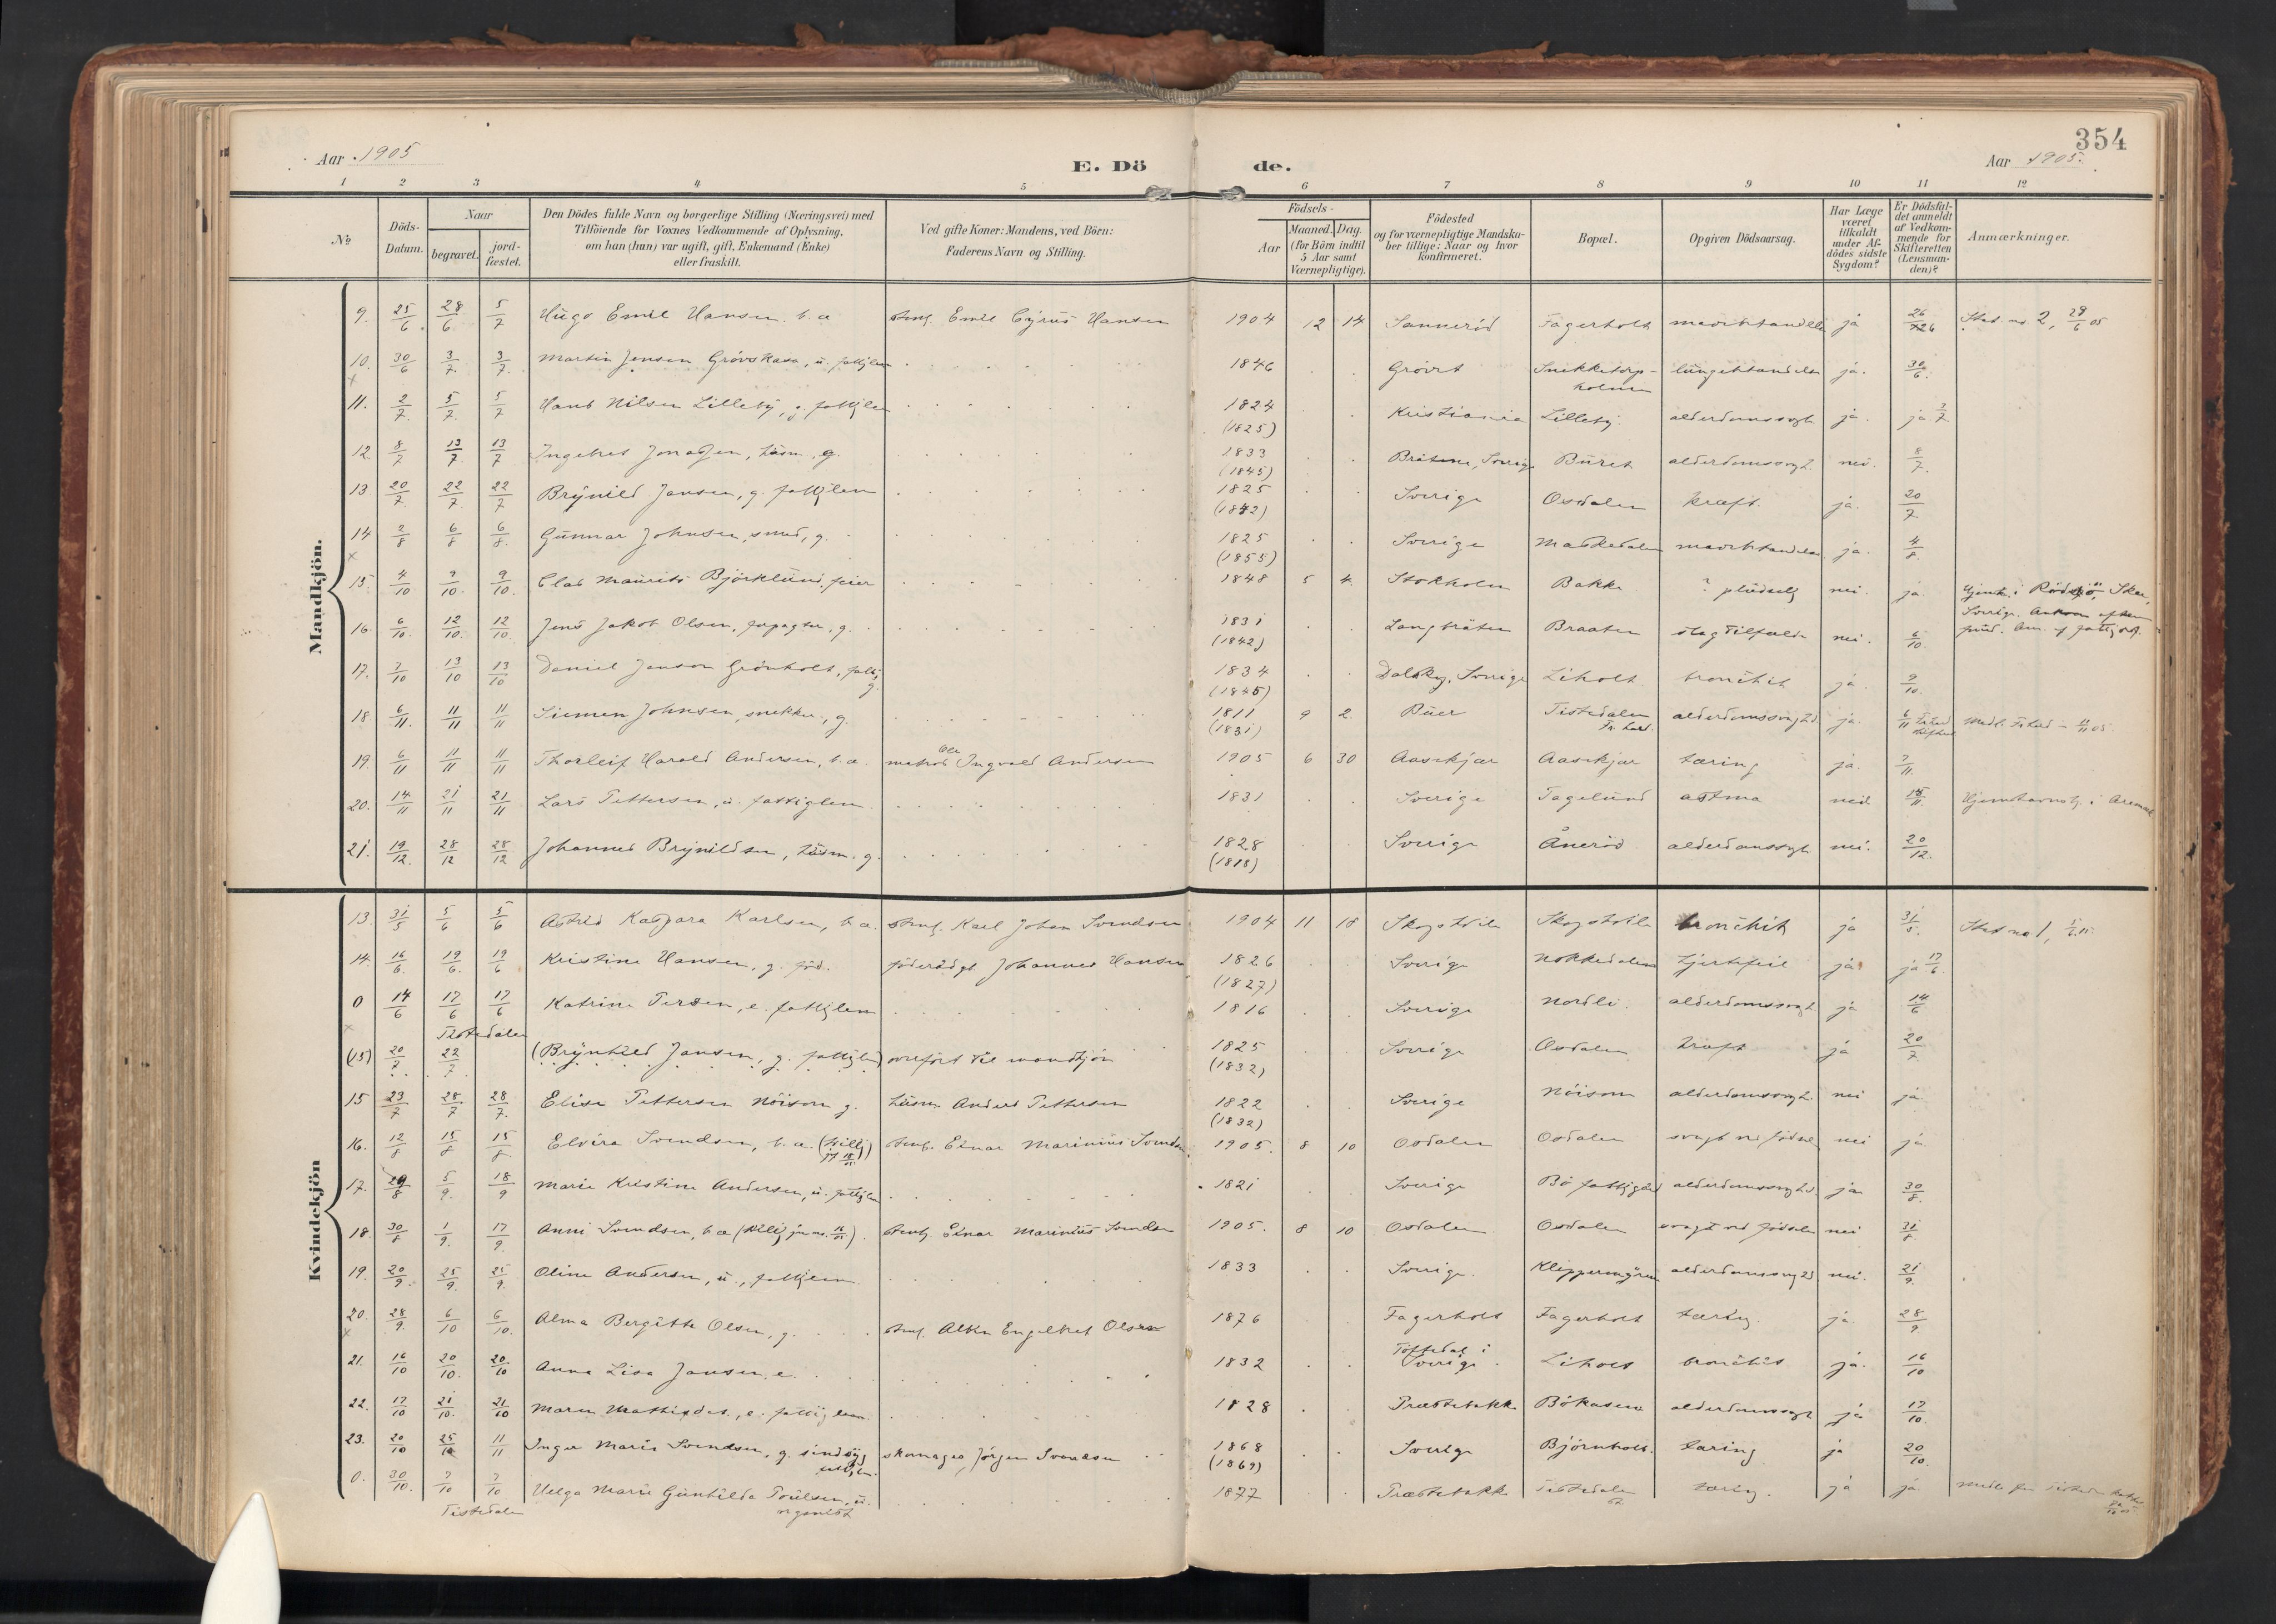 354
Aar 1905
E. Dö de.
Aar 1905.
1 2 3 4 5 6 7 8 9 10 11 12
No
Döds-Datum.
Naar
begravet.
jord-fæstet.
Den Dödes fulde Navn og borgerlige Stilling (Næringsvei) med
Tilföiende for Voxnes Vedkommende af Oplysning,
om han (hun) var ugift, gift, Enkemand (Enke)
eller fraskilt.
Ved gifte Koner: Mandens, ved Börn:
Faderens Navn og Stilling.
Födsels-
Aar
Maaned. Dag.
(for Börn indtil
5 Aar samt
Værnepligtige).
Födested
og for værnepligtige Mandska-
ber tillige: Naar og hvor
konfirmeret.
Bopæl.
Opgiven Dödsaarsag.
Har Læge
været
tilkaldt
under Af-
dödes sidste
Sygdom?
Er Dödsfal-
det anmeldt
af Vedkom-
mende for
Skifteretten
(Lensman-
den)?
Anmærkninger.
Mandkjön.
9. 25/6. 28/6. 5/7 Hugo Emil Hansen b. a Emil Cyrus Hansen 1904 12 14 Sanneröd Fagerholt ja
10. 30/6 3/7. 3/7. Martin Jensen Grövskasa, u. fattiglem 1846 Grovst ja. 30/6.
11. 2/7. 5/7. 5/7 Hans Nilsen Lilleby, g. fattiglem 1824 (1825) Kristiania Lilleby alderdomssvagh. ja. ja 3/7
12. 8/7 13/7. 13/7 Ingebret Jonassen, husm. g. 1833 (1845) Bråtene, Sverige Buret alderdomssvagh. nei. 8/7.
13 20/7. 22/7. 22/7 Brynild Jansen, g. fattiglem 1825 (1842) Sverige Osdalen kræft. ja. 20/7.
14 2/8 6/8 6/8. Gunnar Johnsen, smed, g. 1825 (1855) Sverige ja. 4/8
15. 4/10 9/10. 9/10. Clas Maurits Björklund, feier 1848 5 4. Stokholm Bakke ? pludselig nei. ja
16. 6/10. 12/10. 12/10. Jens Jakob Olsen, forpagter, g. 1831 (1842) Langbråten Braaten slagtilfælde nei. 6/10.
17. 7/10 13/10 13/10 Daniel Janson Grönholt, g. 1834 (1845) Dalsky, Sverige Liholt bronchit ja. 9/10.
18. 6/11. 11/11 11/11 Simen Johnsen, snekker, g. 1811 (1831) 9 2. Buer Tistedalen alderdomssvaghd. ja. 6/11
19. 6/11 11/11 11/11 Thorleif Harald Andersen, b. a. Ingvald Andersen 1905 6 30 Aaserkjær Aaserkjær tæring ja. 7/11.
20. 14/11 21/11 21/11 Lars Pettersen, u. fattiglem 1831 Sverige Tagelund astma nei. 15/11. i Aremark
21. 19/12. 28/12 28/12 Johannes Brynildsen, husm. g. 1828 (1818) Sverige Åneröd alderdomssvagh. nei. 20/12.
Kvindekjön
13. 31/5 5/6 5/6 Astrid Kaspara Karlsen, b. a. Karl Johan Svendsen 1904 11 18 Skogstvile Skogstvile bronchit ja 31/5.
14. 16/6. 19/6. 19/6 Kristine Hansen, g. föd. föderådsm. Johannes Hansen 1826 (1827) Sverige Nokkedalen hjertefeil ja ja 17/6.
0 14/6 17/6 17/6 Katrine Persen, e. fattiglem 1816 Sverige Nordli alderdomssvagh. ja 14/6
Tistedalen
(15) 20/7. 22/7 (Brynhild Jansen, g. fattiglem) overfört til mandkjön 1825 (1832) Sverige Osdalen kræft ja 20/7
15 23/7 28/7 28/7. Elise Pettersen Nöisom g. husm. Anders Pettersen 1822 (1832) Sverige Nöisom alderdomssvagh. nei ja.
16. 12/8 15/8 15/8. Elvira Svendsen, b. a. (tvilling) Einar Marinius Svendsen 1905. 8 10 Osdalen Osdalen svagh. ved födsel nei ja.
17. 29/8 5/9. 18/9 Marie Kristine Andersen, u. fattiglem 1821 Sverige Bö fattiggård alderdomssvaghd. ja 30/8.
18. 30/8 1/9. 17/9. Anni Svendsen, b. a Einar Marinius Svendsen 1905. 8 10 Osdalen Osdalen svagh. ved födselen nei 31/8.
19. 20/9. 25/9. 25/9. Oline Andersen, u., fattiglem 1833 Sverige. alderdomssvaghd nei. 21/9.
20. 28/9. 6/10 6/10. Alma Bergitte Olsen, g. Engelbret Olsen 1876 Fagerholt Fagerholt tæring ja. 28/9
21. 16/10 20/10. 20/10 Anna Lisa Jansen, e. 1832 Töftedal i Sverige. Liholt bronchit ja. 16/10
22. 17/10 21/10. 21/10 Maren Mathisdat., e. fattiglem. 1828 Præstebakke Bökasen alderdomssvagh ja 17/10.
23. 20/10 25/10 11/11 Inger Marie Svendsen, g. sindsyg skomager Jörgen Svendsen 1868 (1869) Sverige Björnholt. tæring ja 20/10.
0. 30/10. 7/10 7/10 Helga Marie Gunhilda Poulsen, u. 1877 Præstebakke Tistedalen tæring. ja ja.
Tistedalen